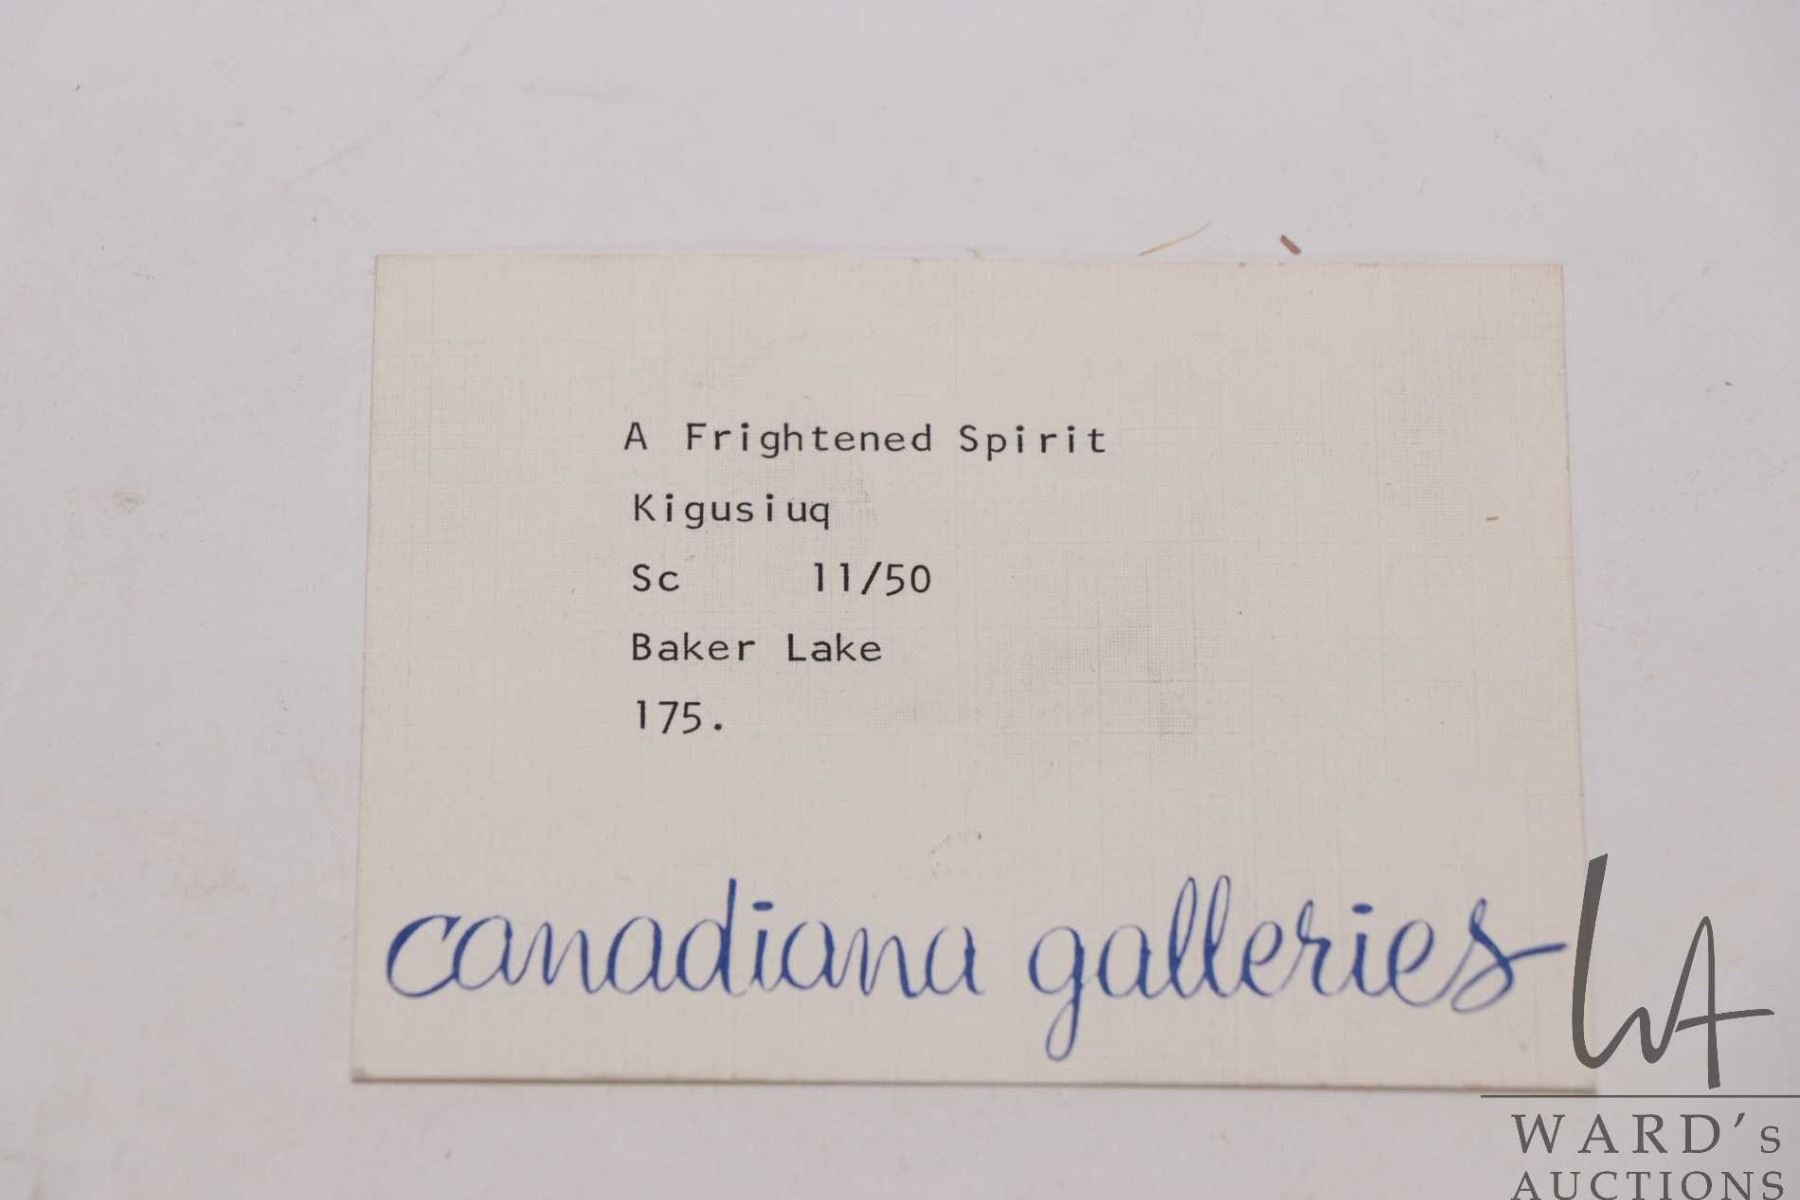 A Frightened Spirit
Kigusiuq
Sc 11/50
Baker Lake
175.
canadiana galleries
WA
WARD's
AUCTIONS